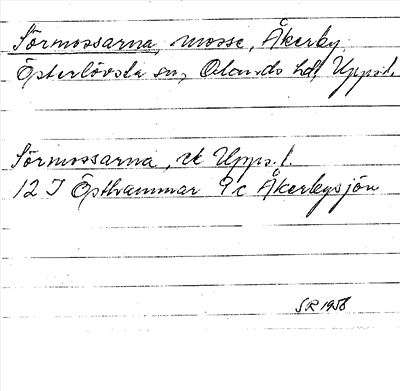 Sörmossarna, mosse, Åkerby,
Österlövsta sn, Olands hd, Uppsl.
Sörmossarna, ek Upps. l.
12 I Östhammar 9c Åkerbysjön
SR 1958